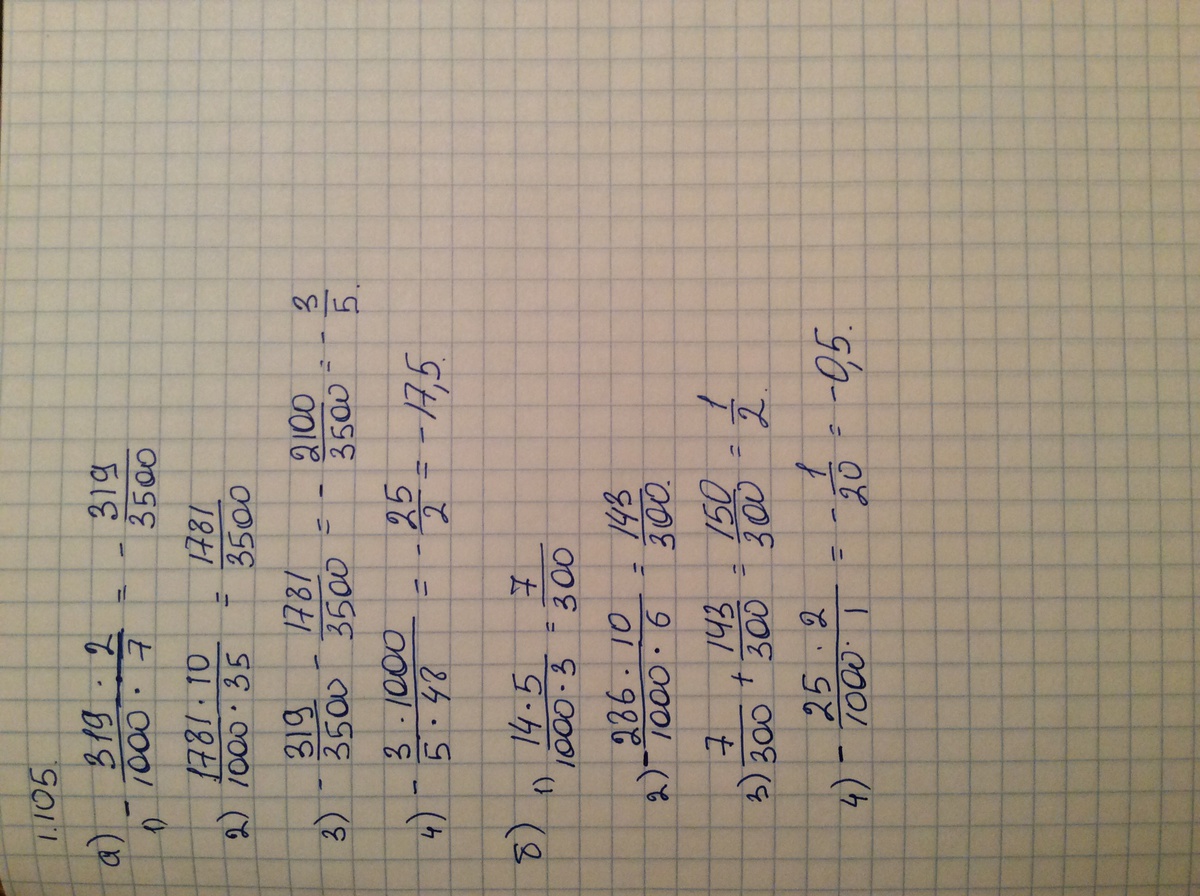 1.105.
а) 1) - (319 · 2)/(1000 · 7) = - 319/3500
2) (1781 · 10)/(1000 · 35) = 1781/3500
3) - 319/3500 - 1781/3500 = - 2100/3500 = - 3/5.
4) - (3 · 1000)/(5 · 48) = - 25/2 = - 17,5.
б) 1) (14 · 5)/(1000 · 3) = 7/300
2) - (286 · 10)/(1000 · 6) = 143/300.
3) 7/300 + 143/300 = 150/300 = 1/2.
4) - (25 · 2)/(1000 · 1) = - 1/20 = - 0,5.